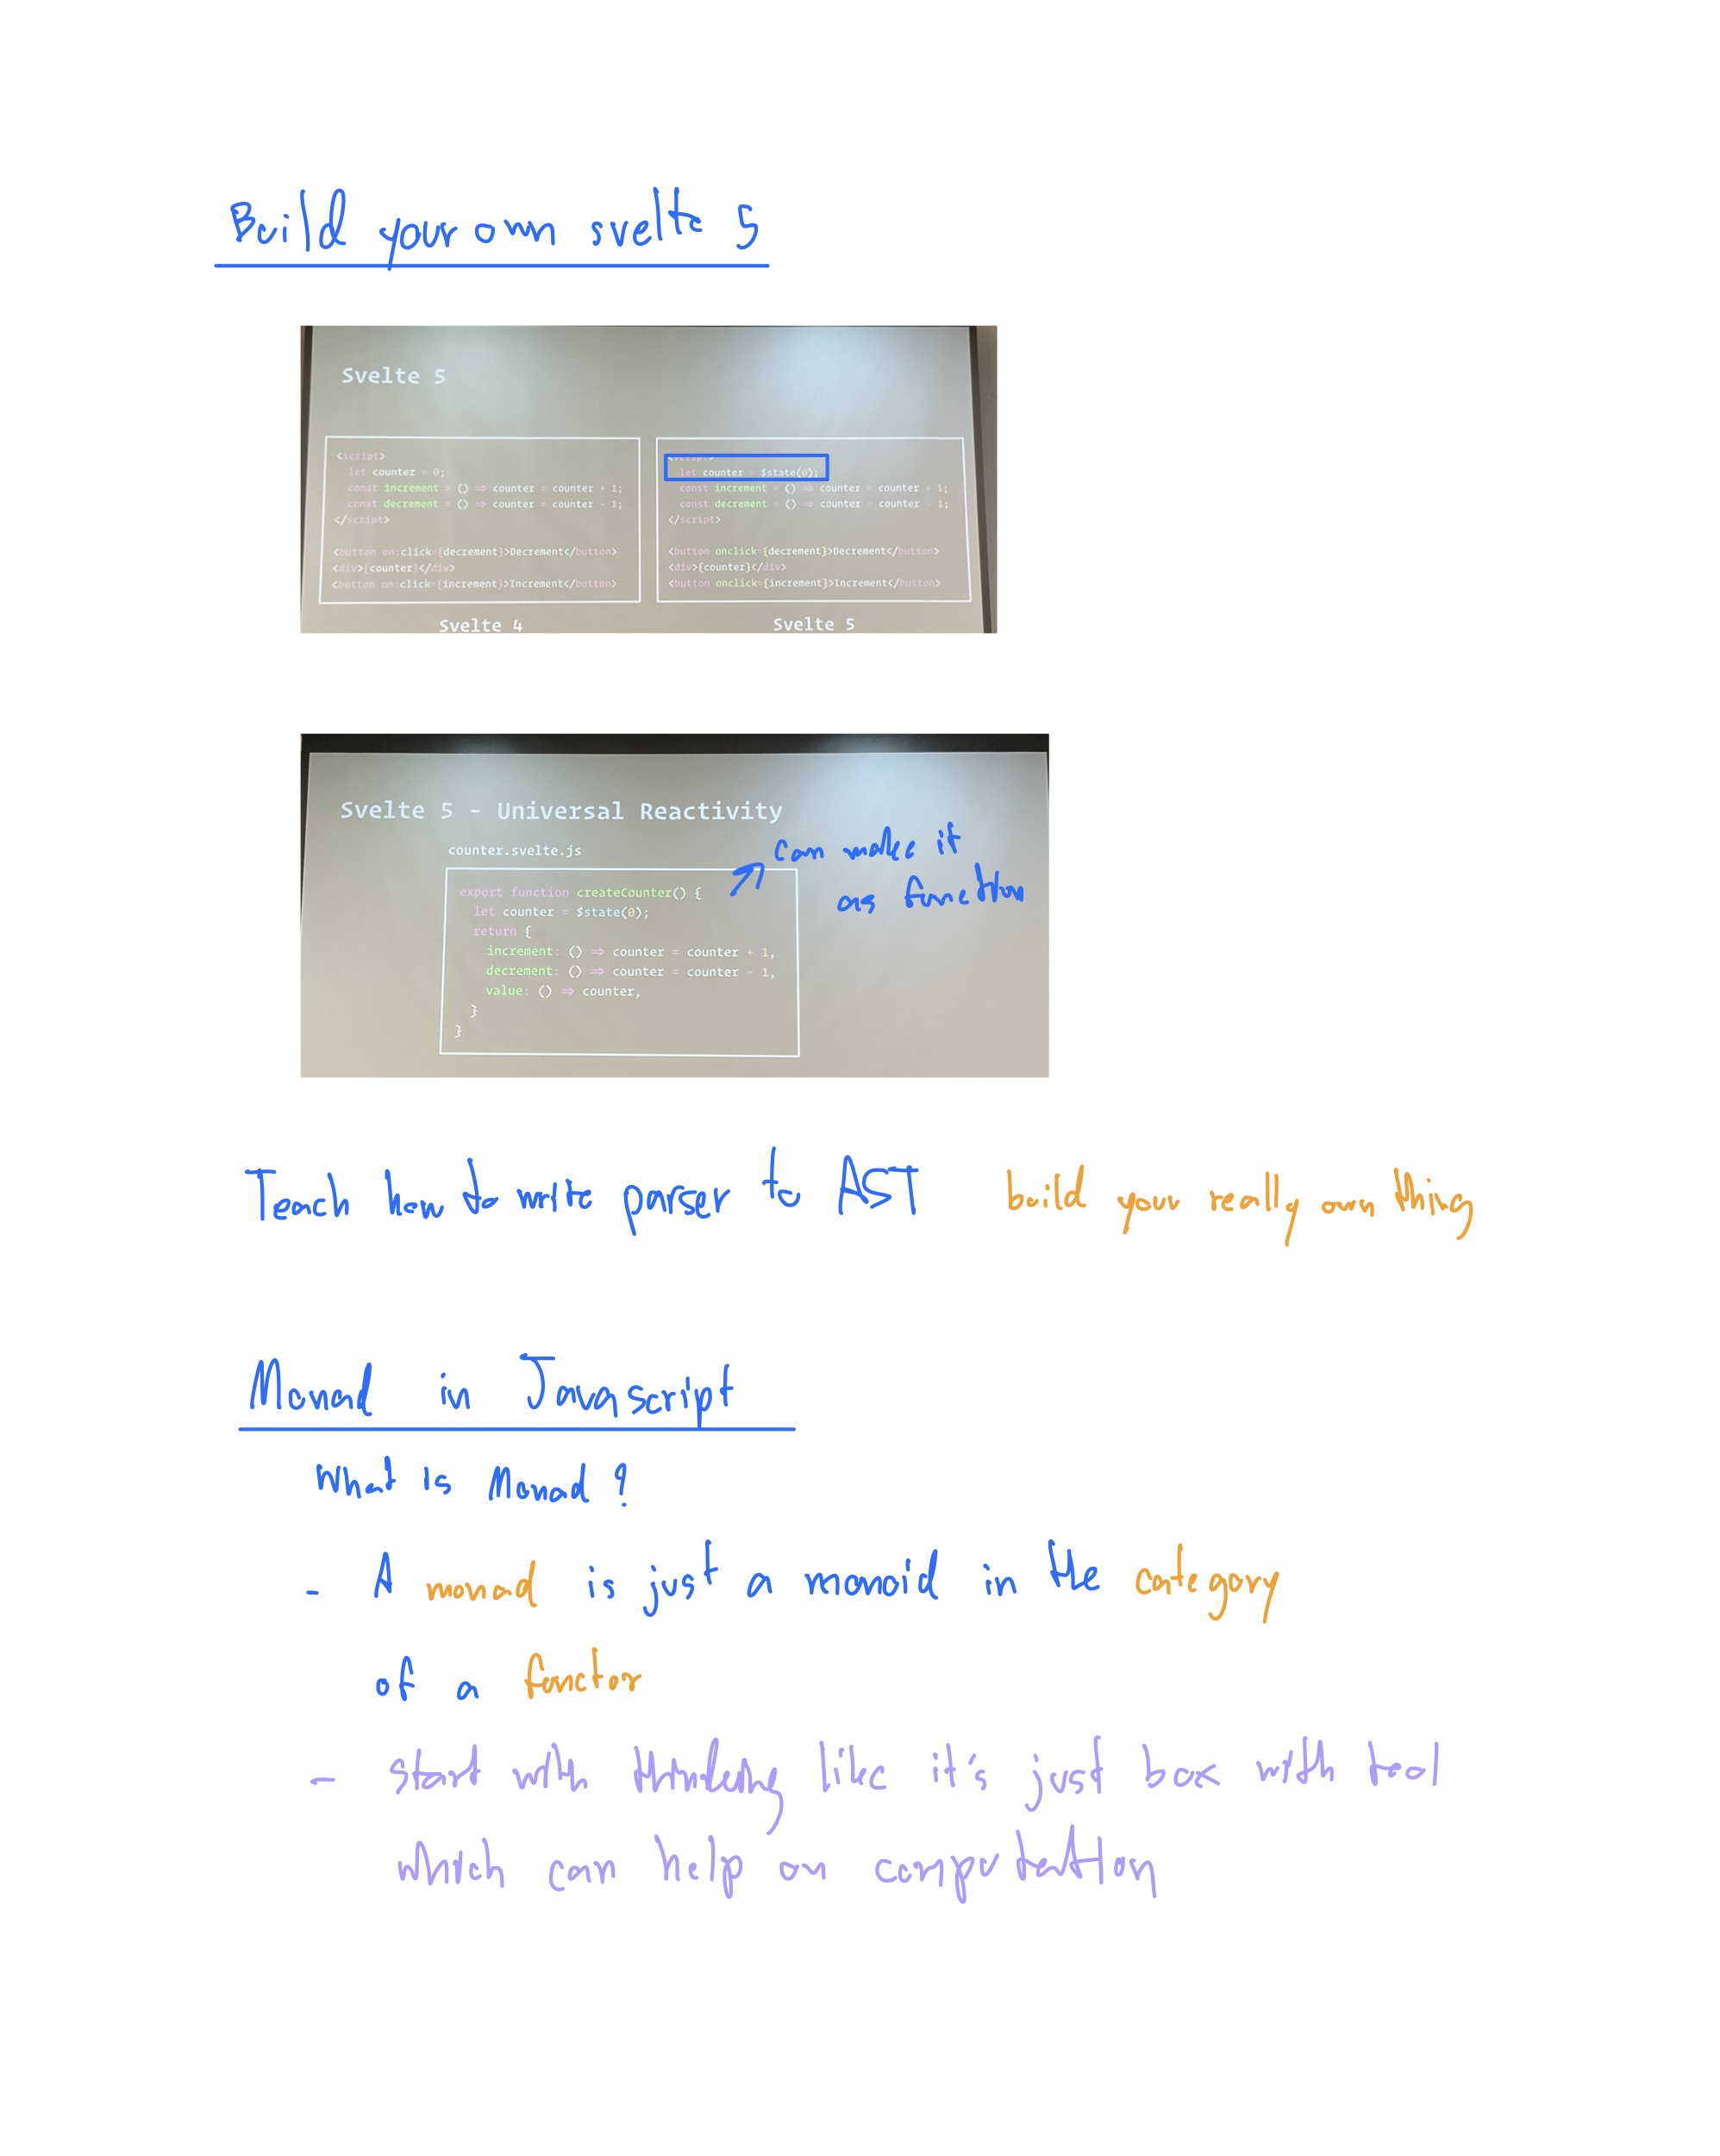 Build your own svelte 5
Svelte 5
<script>
let counter = 0;
const increment = () => counter = counter + 1;
const decrement = () => counter = counter - 1;
</script>
<button on:click={decrement}>Decrement</button>
<div>{counter}</div>
<button on:click={increment}>Increment</button>
Svelte 4
<script>
let counter = $state(0);
const increment = () => counter = counter + 1;
const decrement = () => counter = counter - 1;
</script>
<button onclick={decrement}>Decrement</button>
<div>{counter}</div>
<button onclick={increment}>Increment</button>
Svelte 5
Svelte 5 - Universal Reactivity
counter.svelte.js
can make it
as function
export function createCounter() {
let counter = $state(0);
return {
increment: () => counter = counter + 1,
decrement: () => counter = counter - 1,
value: () => counter,
}
}
Teach how to write parser to AST build your really own thing
Monad in Javascript
What is Monad ?
- A monad is just a monoid in the category
of a functor
- start with thinking like it's just box with tool
which can help on computation